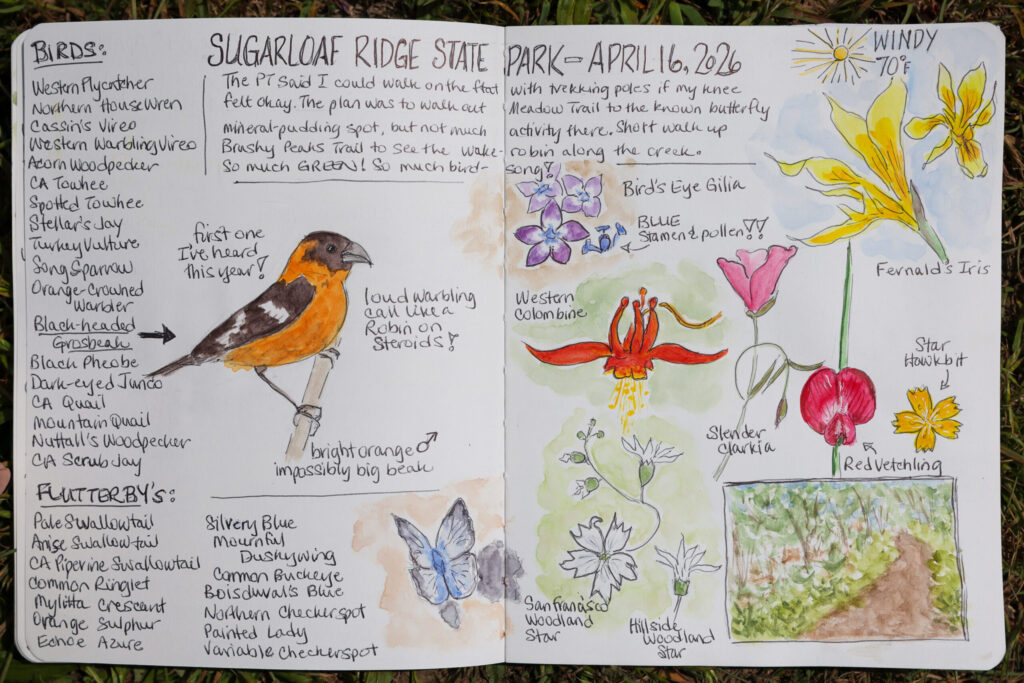 SUGARLOAF RIDGE STATE PARK – APRIL 16, 2026
WINDY
70°F
The PT said I could walk on the flat with trekking poles if my knee
felt okay. The plan was to walk out Meadow Trail to the known butterfly
mineral-pudding spot, but not much activity there. Short walk up
Brushy Peaks Trail to see the Wake-robin along the creek.
So much GREEN! So much bird-song!
BIRDS:
Western Flycatcher
Northern House Wren
Cassin's Vireo
Western Warbling Vireo
Acorn Woodpecker
CA Towhee
Spotted Towhee
Stellar's Jay
Turkey Vulture
Song Sparrow
Orange-Crowned
Warbler
Black-headed
Grosbeak
Black Pheobe
Dark-eyed Junco
CA Quail
Mountain Quail
Nuttall's Woodpecker
CA Scrub Jay
first one
I've heard
this year!
loud warbling
call like a
Robin on
Steroids!
bright orange ♂
impossibly big beak
FLUTTERBY's:
Pale Swallowtail
Anise Swallowtail
CA Pipevine Swallowtail
Common Ringlet
Mylitta Crescant
Orange Sulphur
Echoe Azure
Silvery Blue
Mournful
Duskywing
Common Buckeye
Boisduval's Blue
Northern Checkerspot
Painted Lady
Variable Checkerspot
Bird's Eye Gilia
BLUE
Stamen & pollen!!
Fernald's Iris
Western
Colombine
Star
Hawkbit
Slender
Clarkia
Red Vetchling
San Francisco
Woodland
Star
Hillside
Woodland
Star